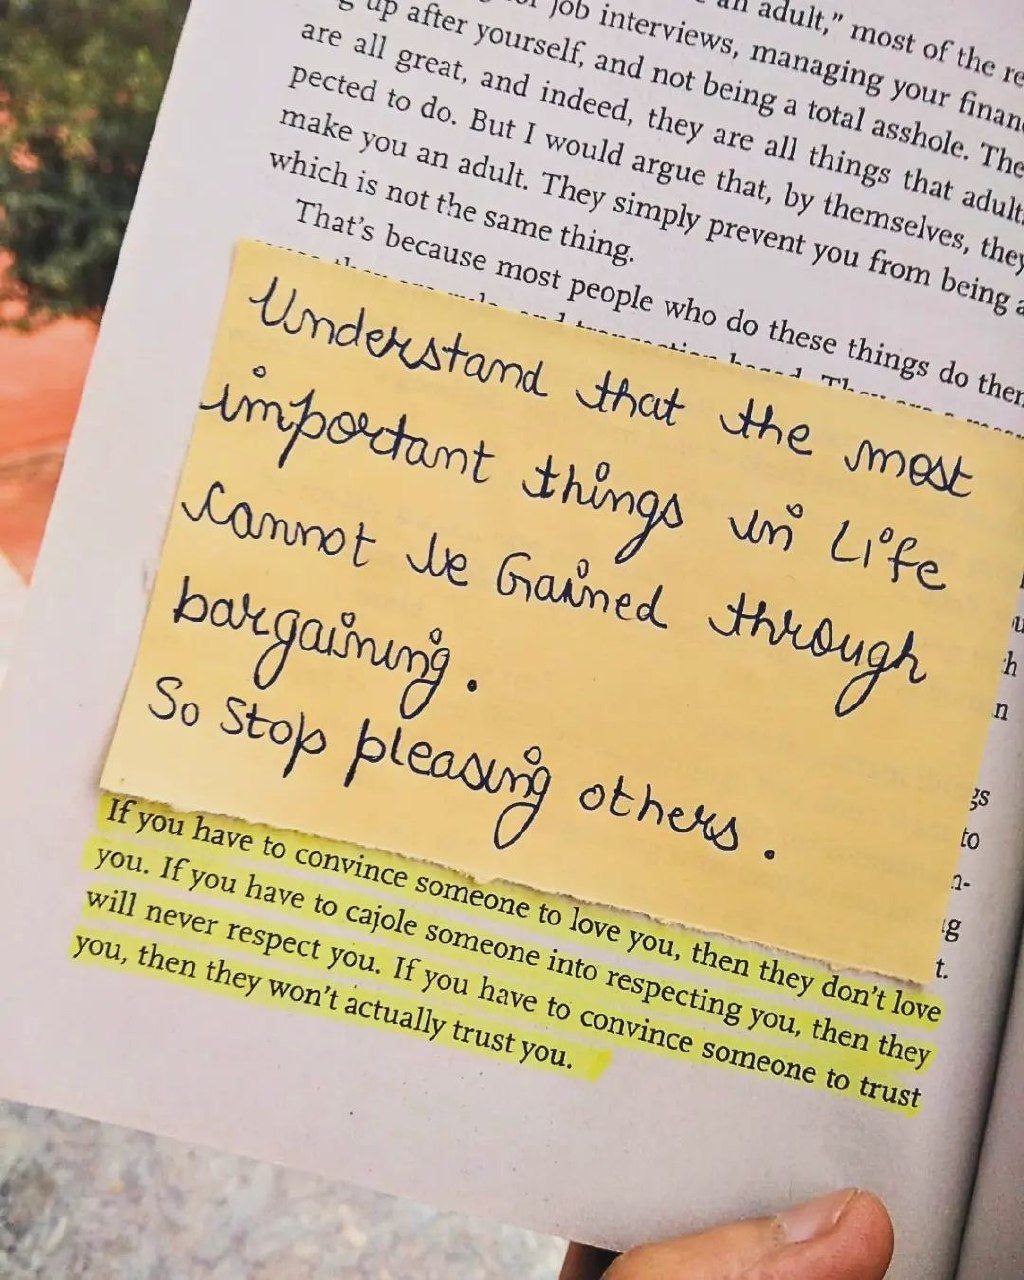 an adult,” most of the
up after yourself, and not being a total asshole. The
job interviews, managing your
are all great, and indeed, they are all things that
pected to do. But I would argue that, by themselves, they
make you an adult. They simply prevent you from being a
which is not the same thing.
That’s because most people who do these things do
Understand that the most
important things in Life
cannot be Gained through
bargaining.
So Stop pleasing others.
to
t.
If you have to convince someone to love you, then they don’t love
you. If you have to cajole someone into respecting you, then they
will never respect you. If you have to convince someone to trust
you, then they won’t actually trust you.